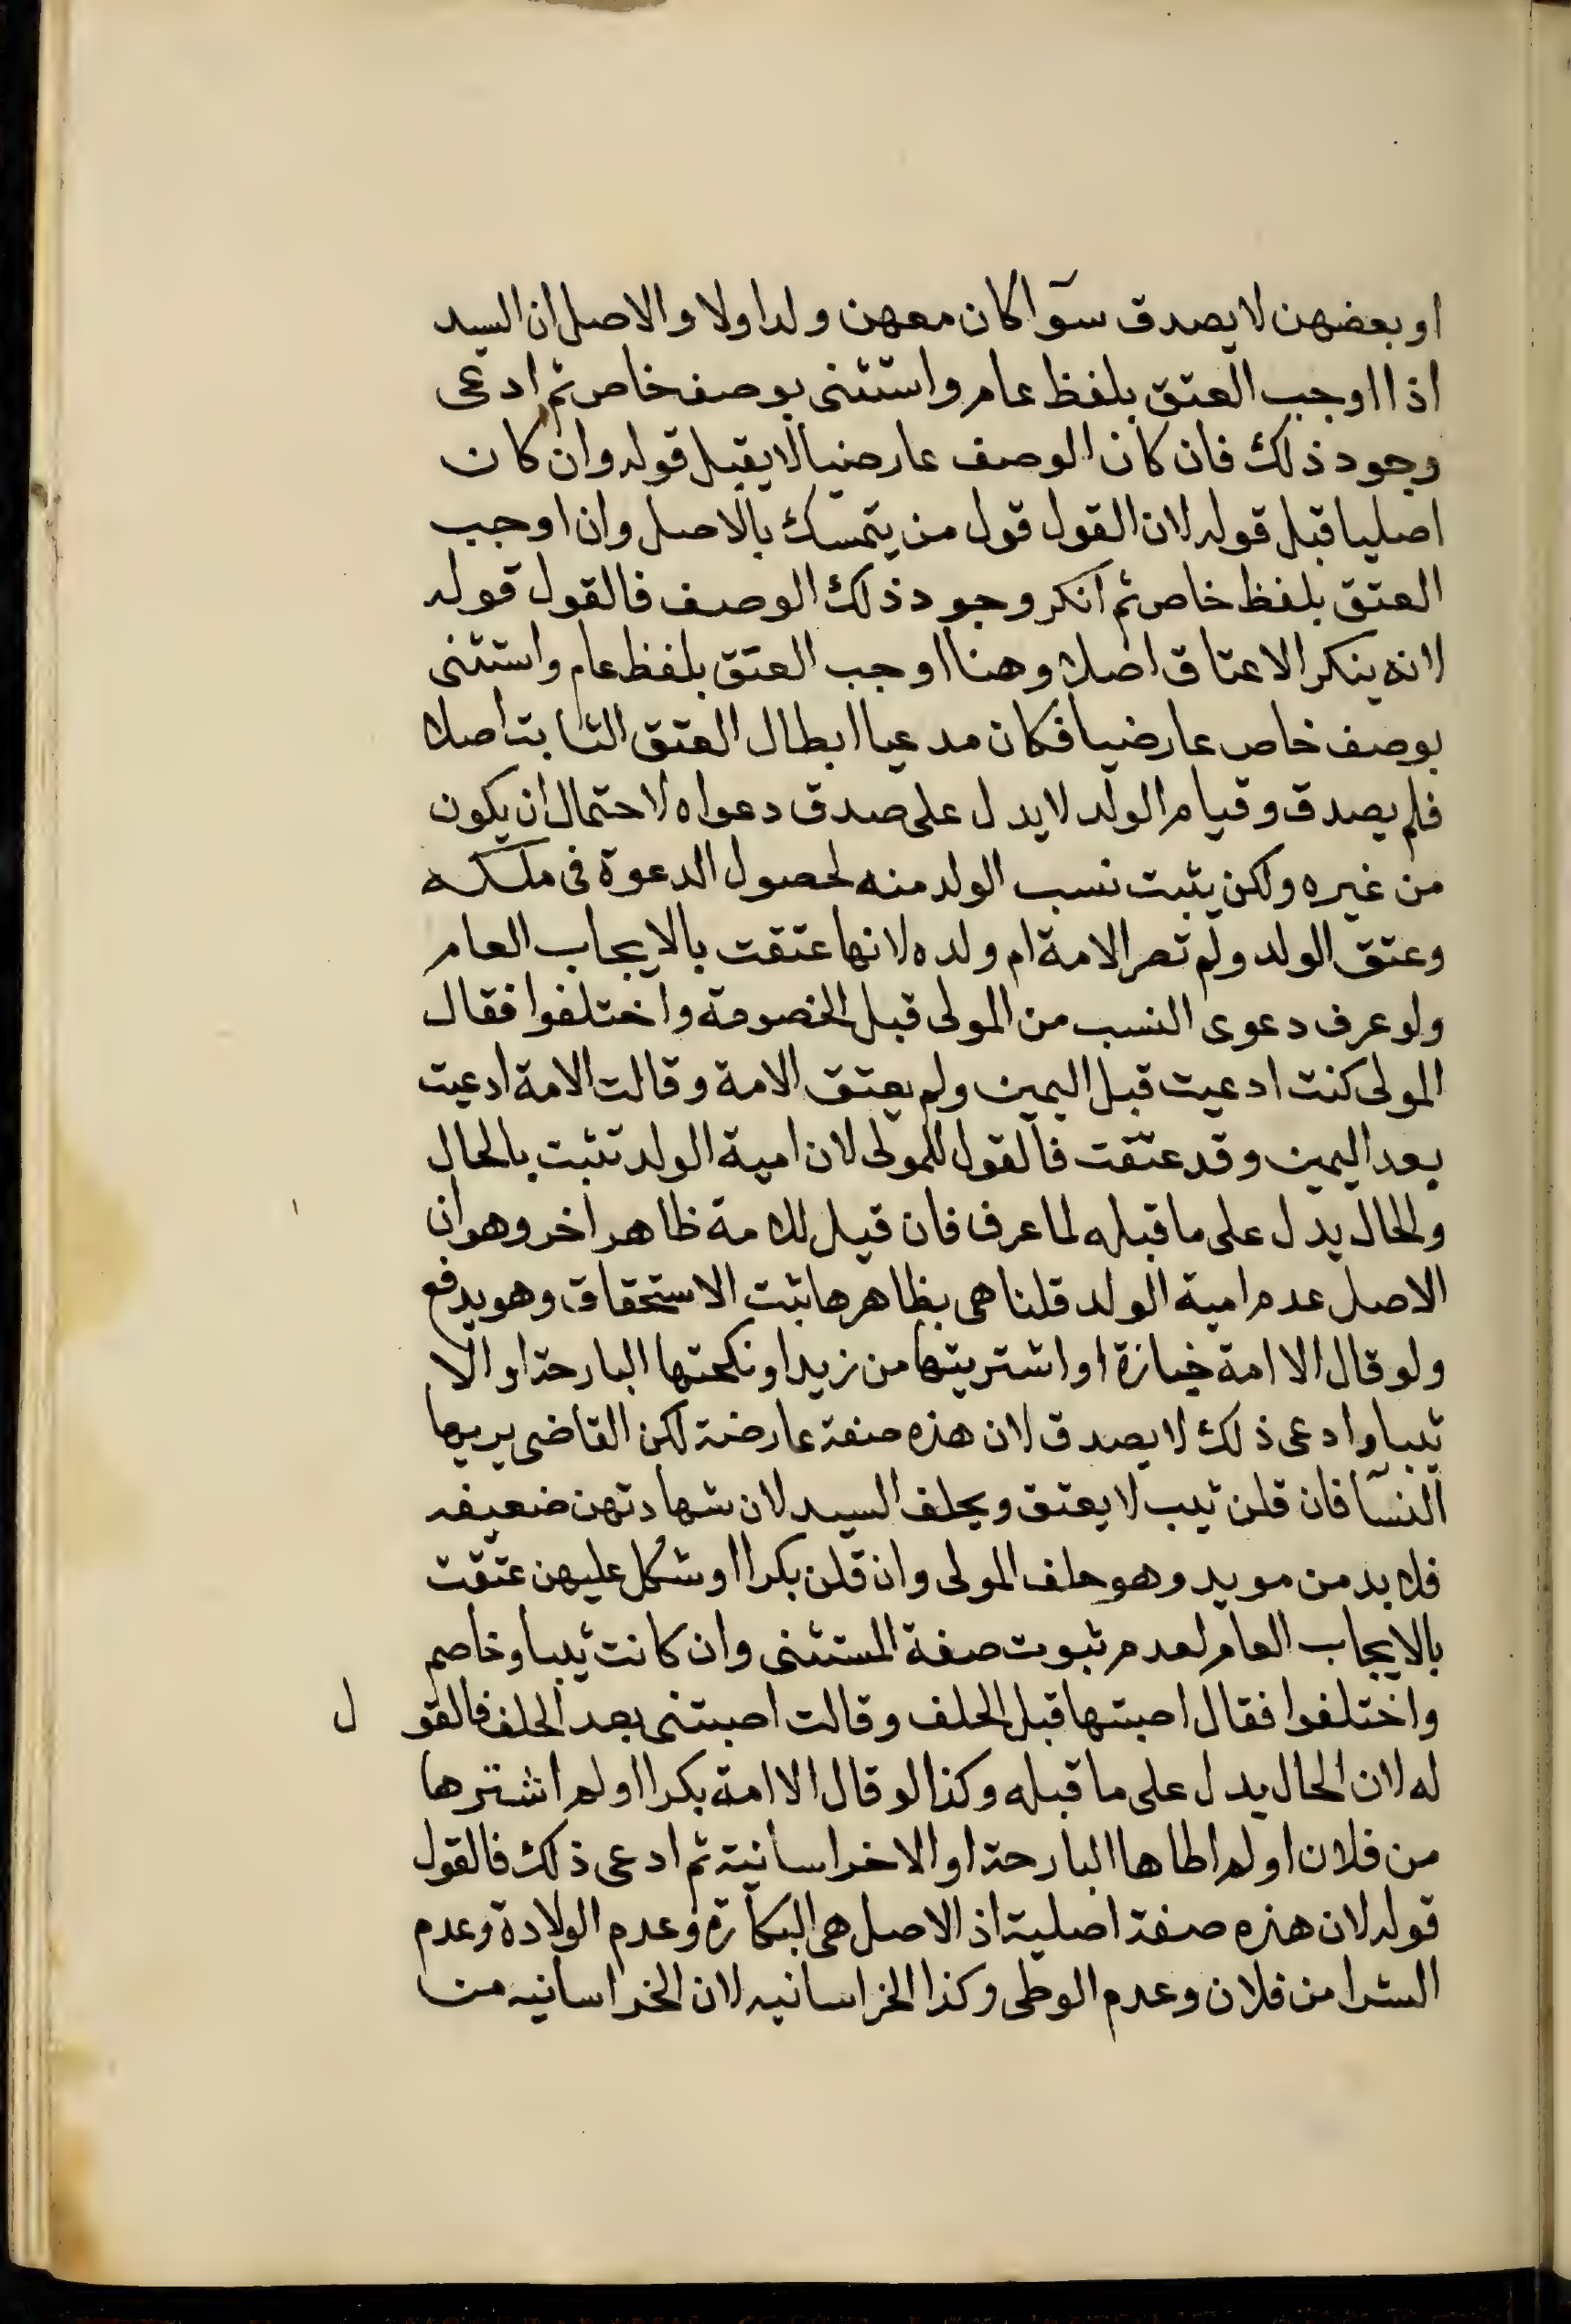 او بعضهن لا يصدق سوآ كان معهن ولد اولا والاصل ان السيد
اذا اوجب العتق بلفظ عام واستثنى بوصف خاص ثم ادعى
وجود ذلك فان كان الوصف عارضيا لا يقبل قوله وان كان
اصليا قبل قوله لان القول قول من يتمسك بالاصل وان اوجب
العتق بلفظ خاص ثم انكر وجود ذلك الوصف فالقول قوله
لانه ينكر الاعتاق اصلا وهنا اوجب العتق بلفظ عام واستثنى
بوصف خاص عارضيا فكان مدعيا ابطال العتق الثابت اصلا
فلم يصدق وقيام الولد لا يدل على صدق دعواه لاحتمال ان يكون
من غيره ولكن يثبت نسب الولد منه لحصول الدعوة فى ملكه
وعتق الولد ولم تصر الامة ام ولده لانها عتقت بالايجاب العام
ولو عرف دعوى النسب من المولى قبل الخصومة واختلفوا فقال
المولى كنت ادعيت قبل اليمين ولم يعتق الامة وقالت الامة ادعيت
بعد اليمين وقد عتقت فالقول للمولى لان امية الولد تثبت بالحال
والحال يدل على ما قبله لما عرف فان قيل للامة ظاهر اخر وهو ان
الاصل عدم امية الولد قلنا هى بظاهرها تثبت الاستحقاق وهو يدفع
ولو قال الا امة خبازة او اشتريتها من زيد او نكحتها البارحة او الا
ثيبا وادعى ذلك لا يصدق لان هذه صفة عارضة لكن القاضى يريها
النسآ فان قلن ثيب لا يعتق ويحلف السيد لان شهادتهن ضعيفه
فلا بد من مويد وهو حلف المولى وان قلن بكرا او شكل عليهن عتقت
بالايجاب العام لعدم ثبوت صفة المستثنى وان كانت ثيبا وخاصم
واختلفوا فقال اصبتها قبل الحلف وقالت اصبتنى بعد الحلف فالقو ل
له لان الحال يدل على ما قبله وكذا لو قال الا امة بكرا او لم اشترها
من فلان او لم اطاها البارحة او الا خراسانية ثم ادعى ذلك فالقول
قوله لان هذه صفة اصلية اذ الاصل هى البكارة وعدم الولادة وعدم
الشرا من فلان وعدم الوطى وكذا الخراسانيه لان الخراسانيه من